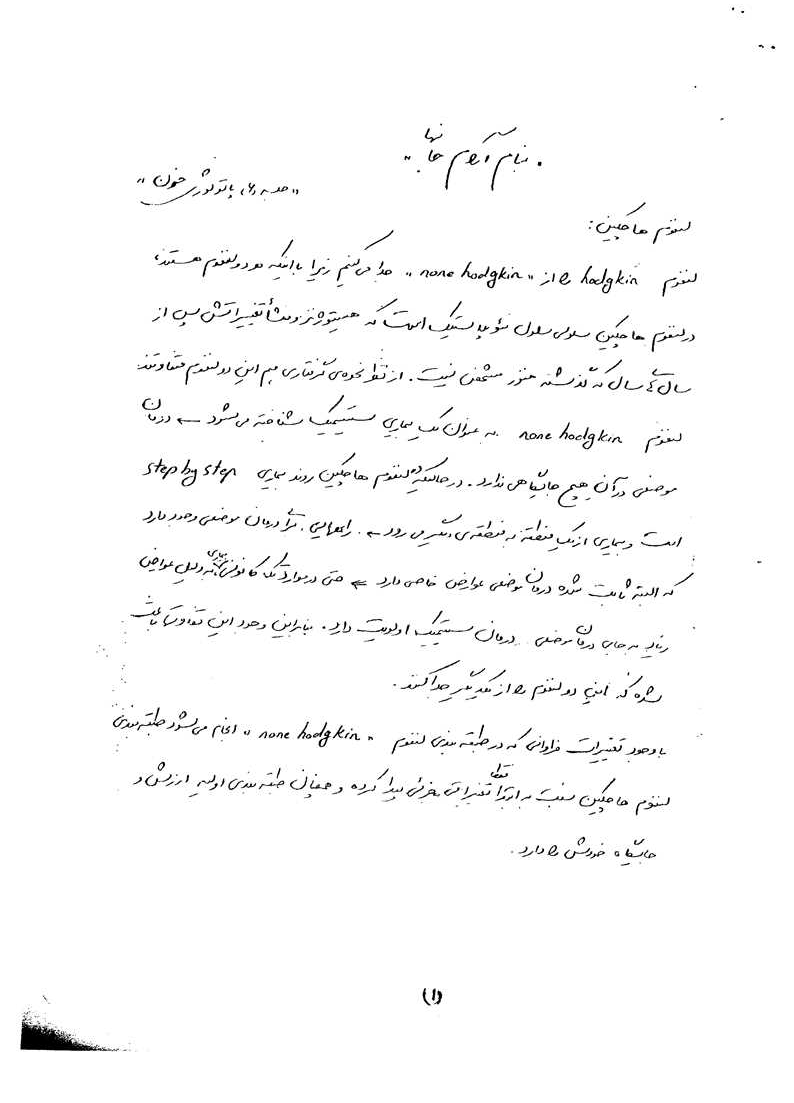 « بنام آرام جانها »
« جلسه دهم پاتولوژی خون »
لنفوم هاجکین:
لنفوم hodgkin را از « none hodgkin » جدا می‌کنیم زیرا با اینکه هر دو لنفوم هستند،
در لنفوم هاجکین سلولی سلول نئوپلاستیک است که هیستوژنز و منشأ تغییراتش پس از
سال که گذشته هنوز مشخص نیست. از نظر نحوه‌ی گرفتاری هم این دو لنفوم متفاوتند
لنفوم none hodgkin به عنوان یک بیماری سیستمیک شناخته می‌شود ← درمان
موضعی در آن هیچ جایگاهی ندارد. در حالیکه در لنفوم هاجکین روند بیماری step by step
است و بیماری از یک منطقه به منطقه‌ی دیگر می رود ← درمان موضعی وجود دارد
که البته ثابت شده درمان موضعی عوارض خاصی دارد ← حتی در موارد تک کانونی بیماری به دلیل عوارض
زیاد به جای درمان موضعی درمان سیستمیک اولویت دارد. بنابراین وجود این تفاوتها باعث
شده که این دو لنفوم را از یکدیگر جدا کنند.
با وجود تغییرات فراوانی که در طبقه بندی لنفوم « none hodgkin » انجام می‌شود طبقه بندی
لنفوم هاجکین نسبت به ابتدا فقط تغییرات جزئی پیدا کرده و همچنان طبقه بندی اولیه ارزش و
جایگاه خودش را دارد.
(۱)